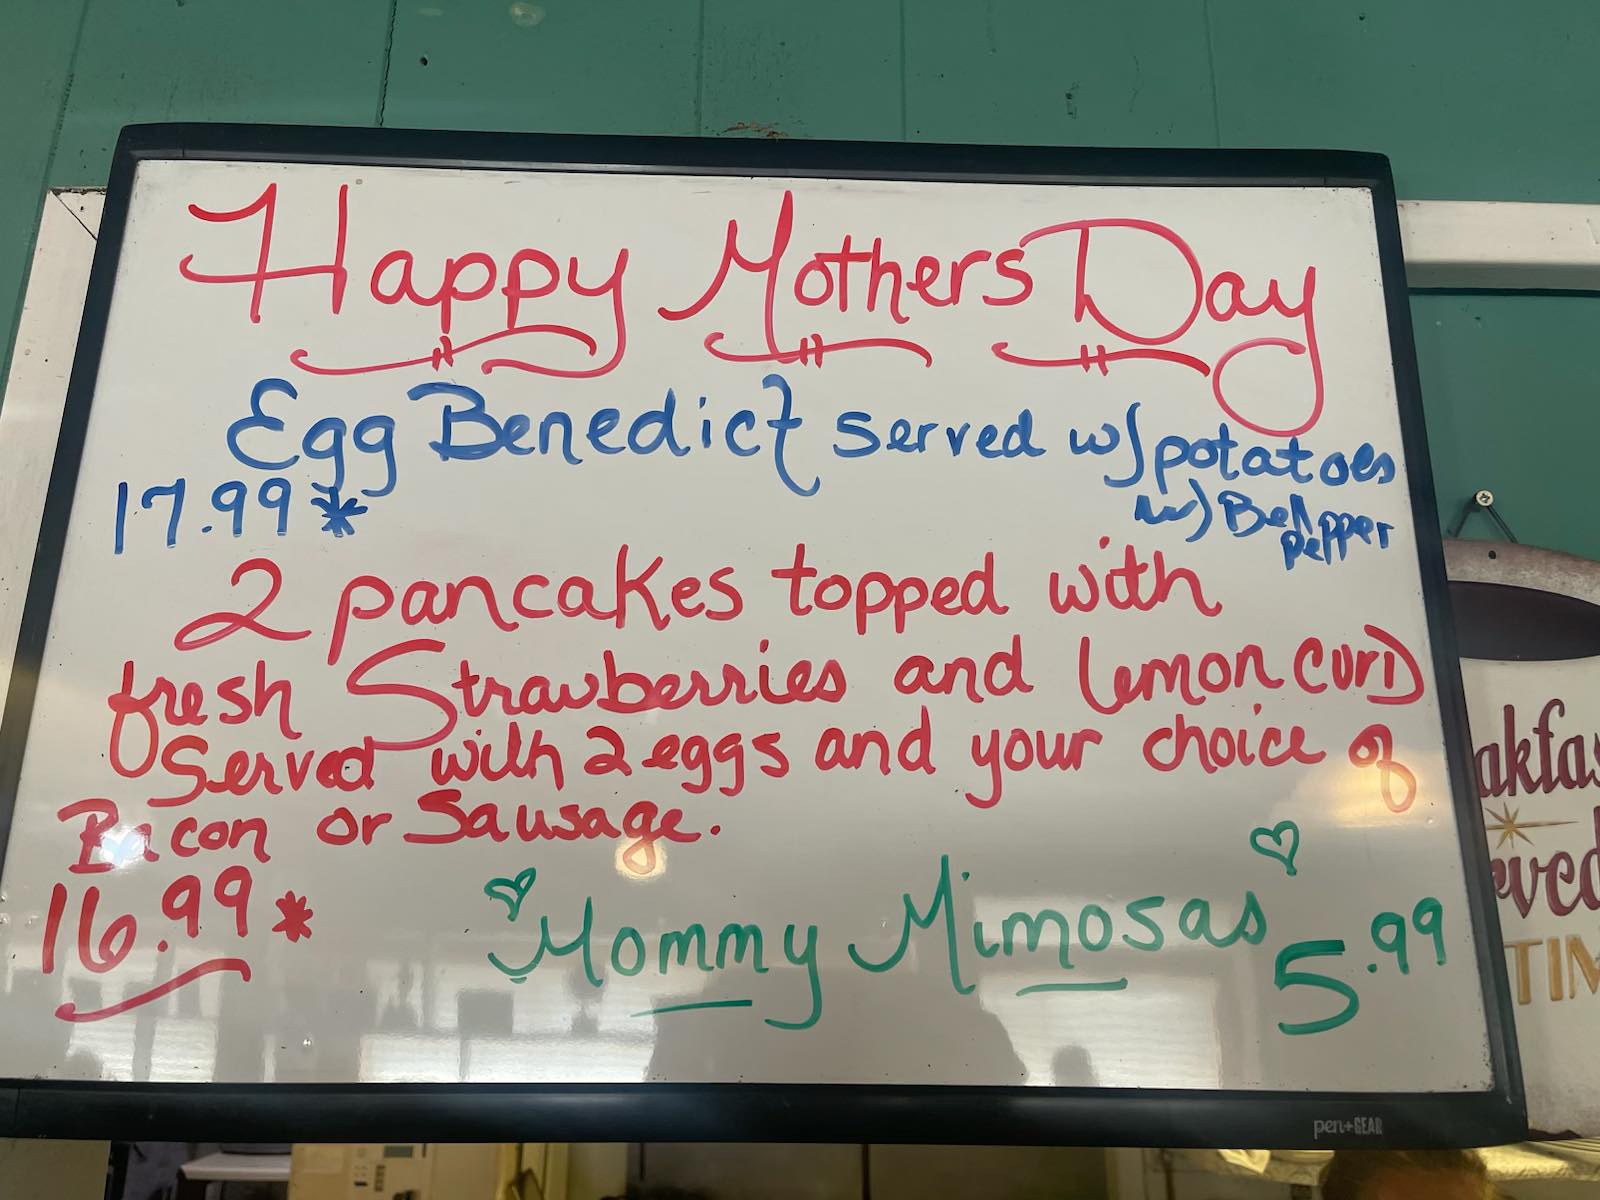 Happy Mothers Day
Egg Benedict served w/ potatoes
17.99* w/ Bell
pepper
2 pancakes topped with
fresh Strawberries and lemon curd
Served with 2 eggs and your choice of
Bacon or Sausage.
16.99*
Mommy Mimosas 5.99
pen+GEAR
akfas
eved
TIM